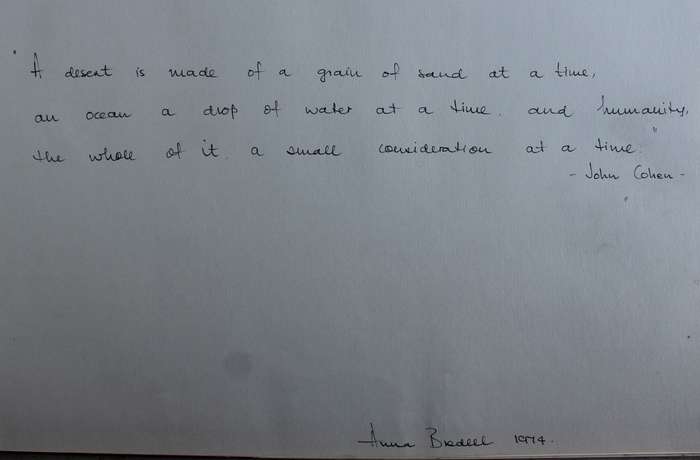 " A desert is made of a grain of sand at a time,
an ocean a drop of water at a time. and humanity,
the whole of it, a small consideration at a time."
- John Cohen -
Anna 1974.